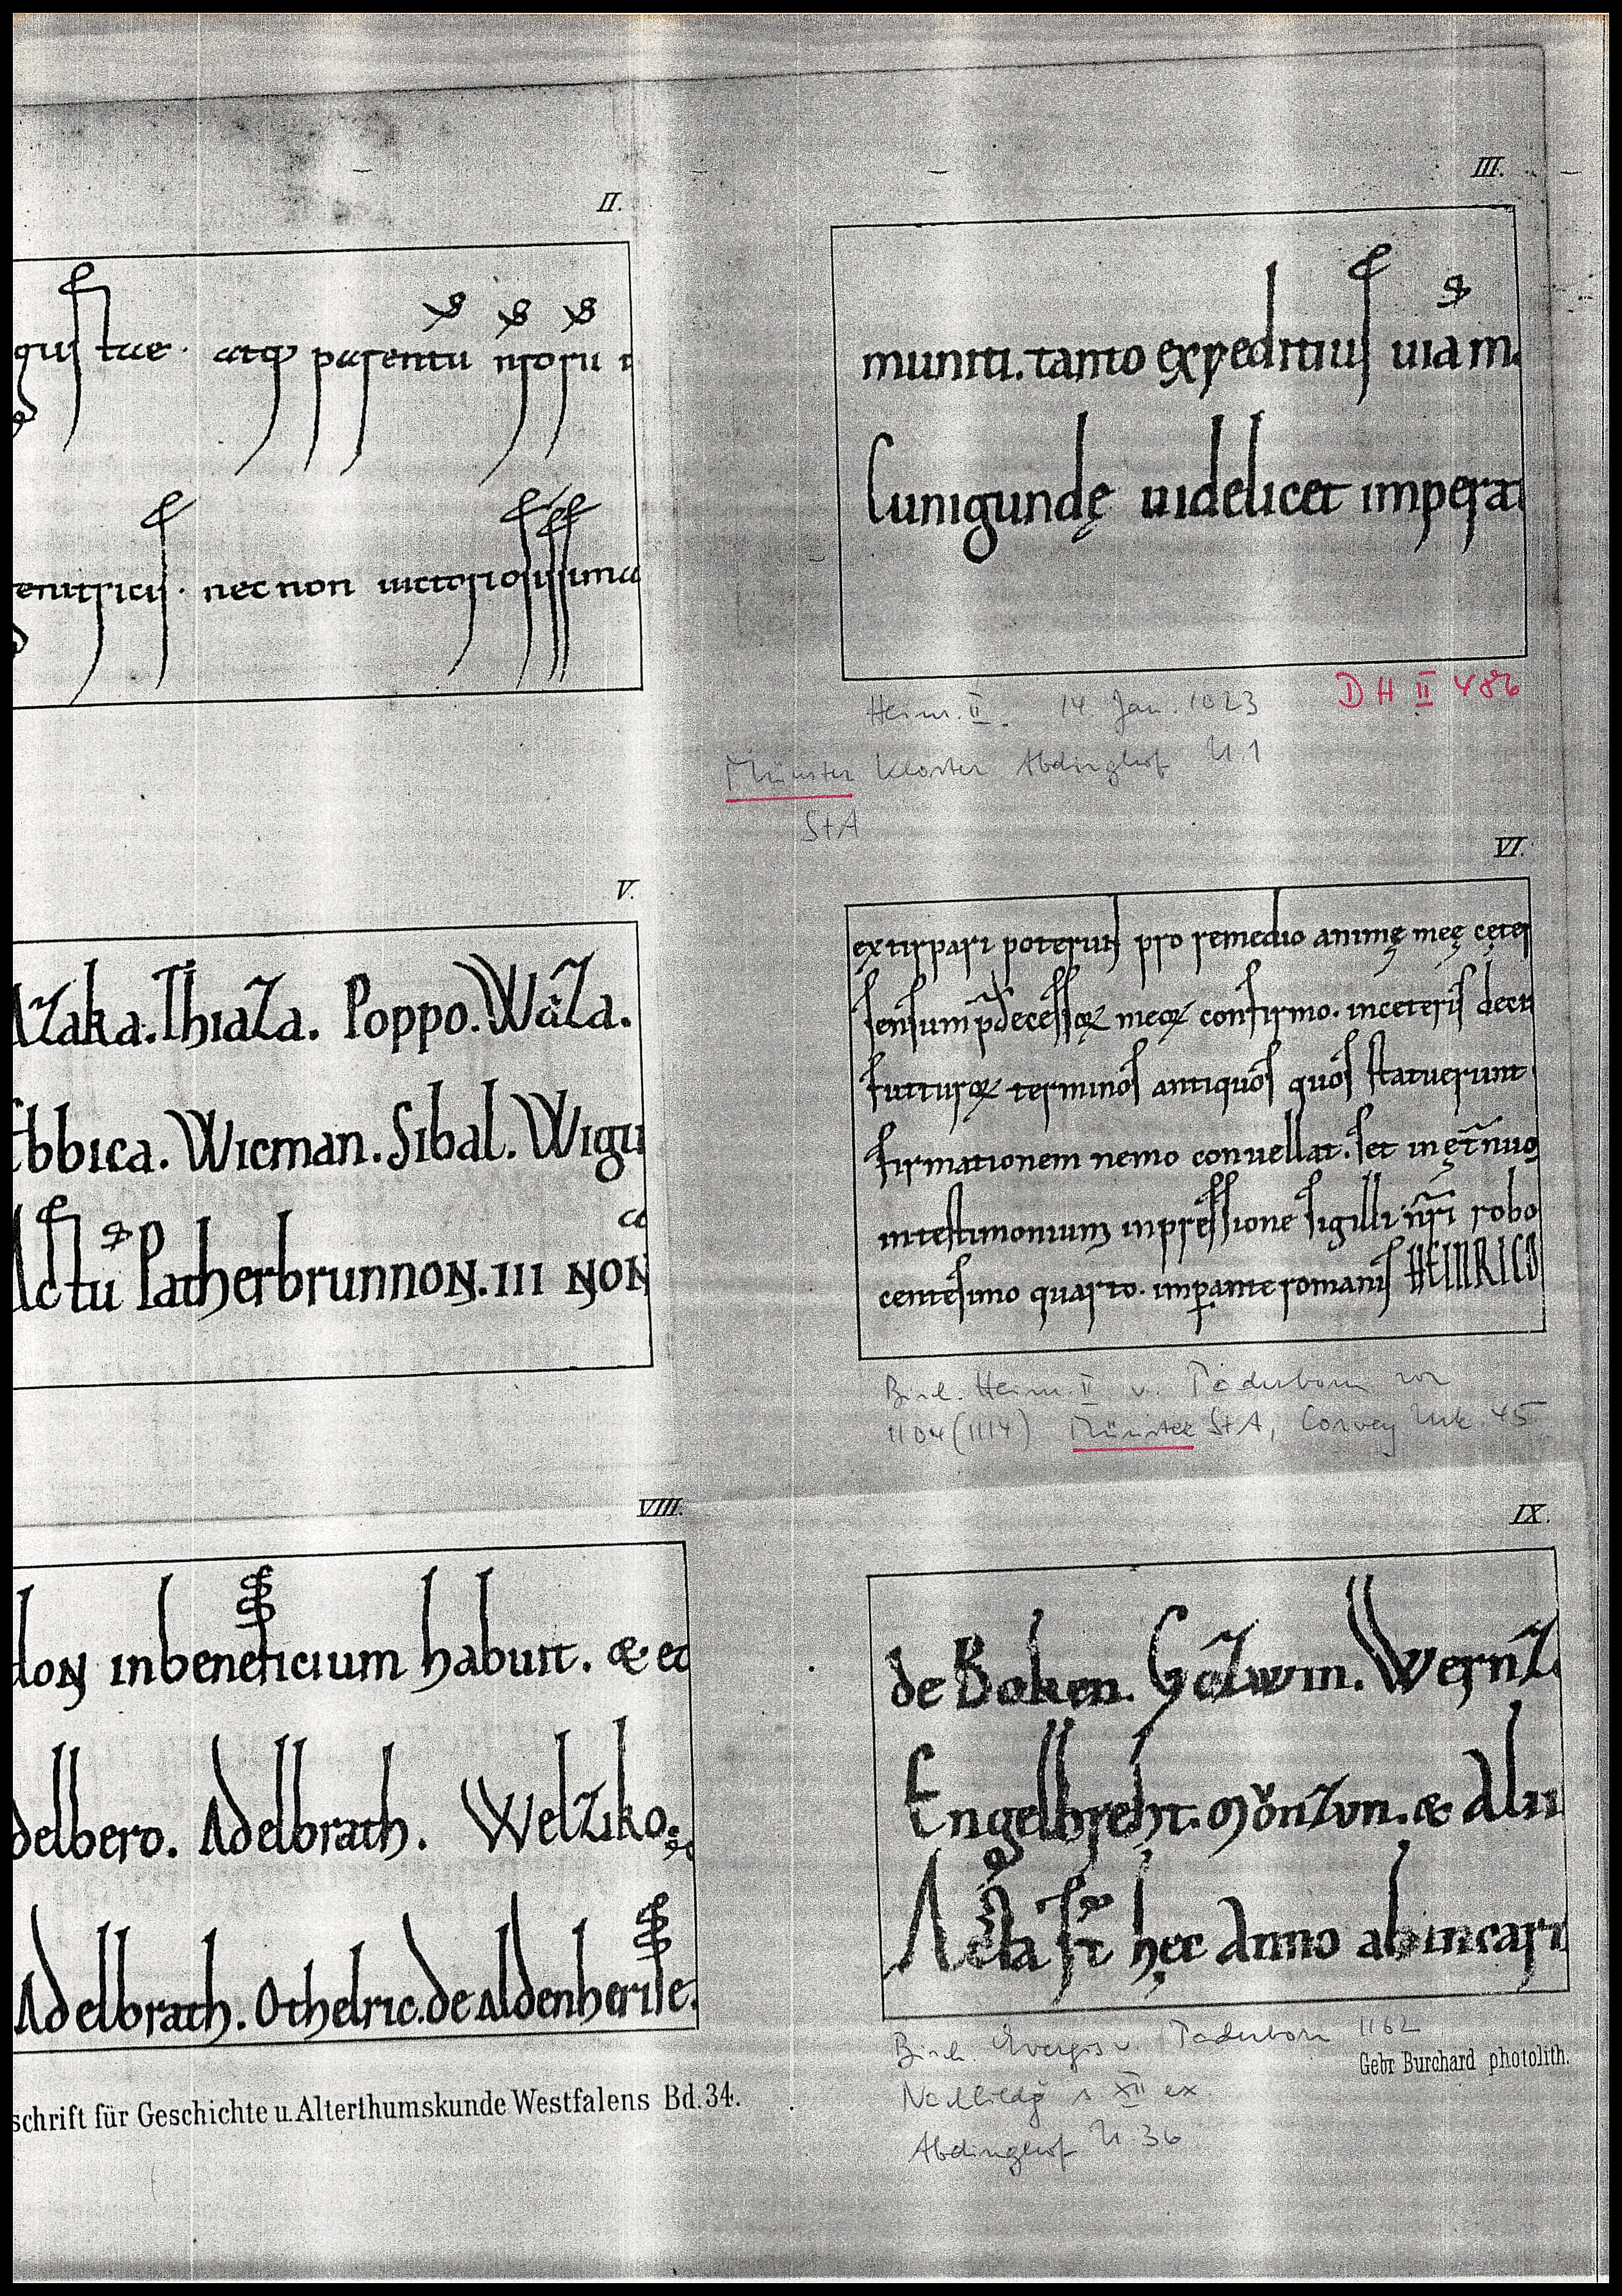 II.
gustae. atq parentu nrorum
enitricis. nec non uictoriosissima
III.
muniti. tanto expeditius uiam.
Cunigundę uidelicet imperat
Heinr. II. 14. Jan. 1023
DH II 486
Münster Kloster Abdinghof U. 1
StA
V.
Azaka. Thiaza. Poppo. Waza.
Ebbica. Wicman. Sibal. Wigu
Actu Patherbrunnon. III NON
VI.
extirpari poterunt pro remedio animę meę cęter
sensum pdecessoꝝ meoꝝ confirmo. inceteris decu
futturoꝝ terminos antiquos quos statuerunt
firmationem nemo conuellat. set in ęt̄nuo
intestimonium inpressione sigilli nr̄i robo
centesimo quarto. imperante romanis HEINRICO
Bisch. Heinr. II v. Paderborn vor
1104 (1114) Münster StA, Corvey Urk. 45
VIII.
don inbeneficium habuit. & ec
delbero. Adelbrath. Welziko.
Adelbrath. Othelric. de aldenherise.
IX.
de Boken. Gozwin. Wernz
Engelbreht. Mönzun. & Alii
Acta st̄ hęc Anno abincarn
Bisch. Evergis v. Paderborn 1162
Gebr Burchard photolith.
Nachbildg s. XII ex.
Abdinghof U. 36
schrift für Geschichte u. Alterthumskunde Westfalens Bd. 34.